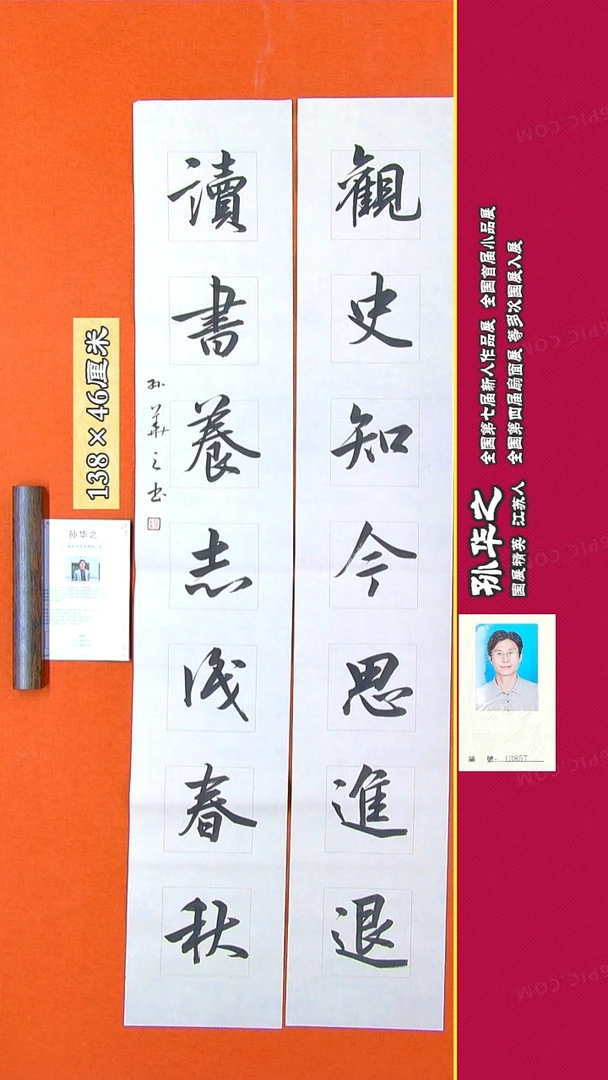 觀史知今思進退
讀書養志識春秋
孙華之书
138×46厘米
孙华之
孙华之
国展精英 江苏人
全国第七届新人作品展 全国首届小品展
全国第四届扇面展 等多次国展入展
編 號: 13857